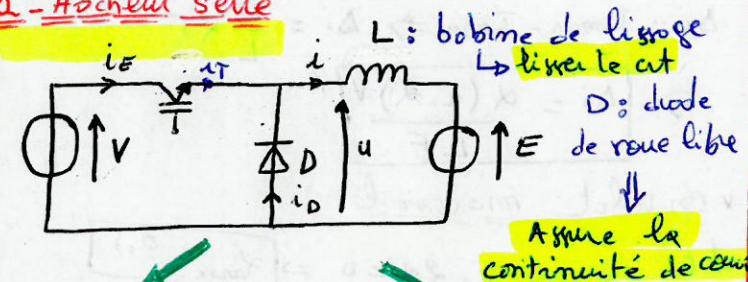 a - Hacheur série
L : bobine de lissage
↳ lisser le crt
D : diode
de roue libre
⇓
Assure la
continuité de cour
iE iT i
V D u E
iD